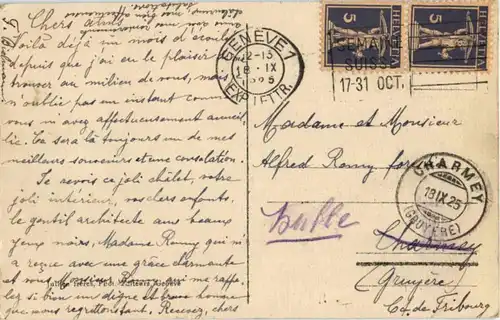 Chers amis
Voilà déjà un mois d'écoulé
depuis que j'ai eu le plaisir de
trouver au milieu de vous, mais
n'oublie pas en instant comme
vous m'avez affectueusement accueil-
lie. Ce sera là toujours un de mes
meilleurs souvenirs et une consolation.
Je revois ce joli châlet, votre
joli intérieur, vos chers enfants.
le gentil architecte aux beaux
yeux noirs. Madame Remy qui m'
a reçue avec une grâce charmante et
vous Monsieur Remy qui me rappe-
lez si bien un digne et brave homme
que nous regrettons tant. Recevez, chers
GENÈVE 1
12-13
18 IX
1925
EXP. LETTR.
SEMAINE
SUISSE
17-31 OCT.
5
HELVETIA
5
HELVETIA
Madame et Monsieur
Alfred Remy
Bulle
Charmey
(Gruyère)
Ct. de Fribourg
CHARMEY
18 IX 25
(GRUYÈRE)